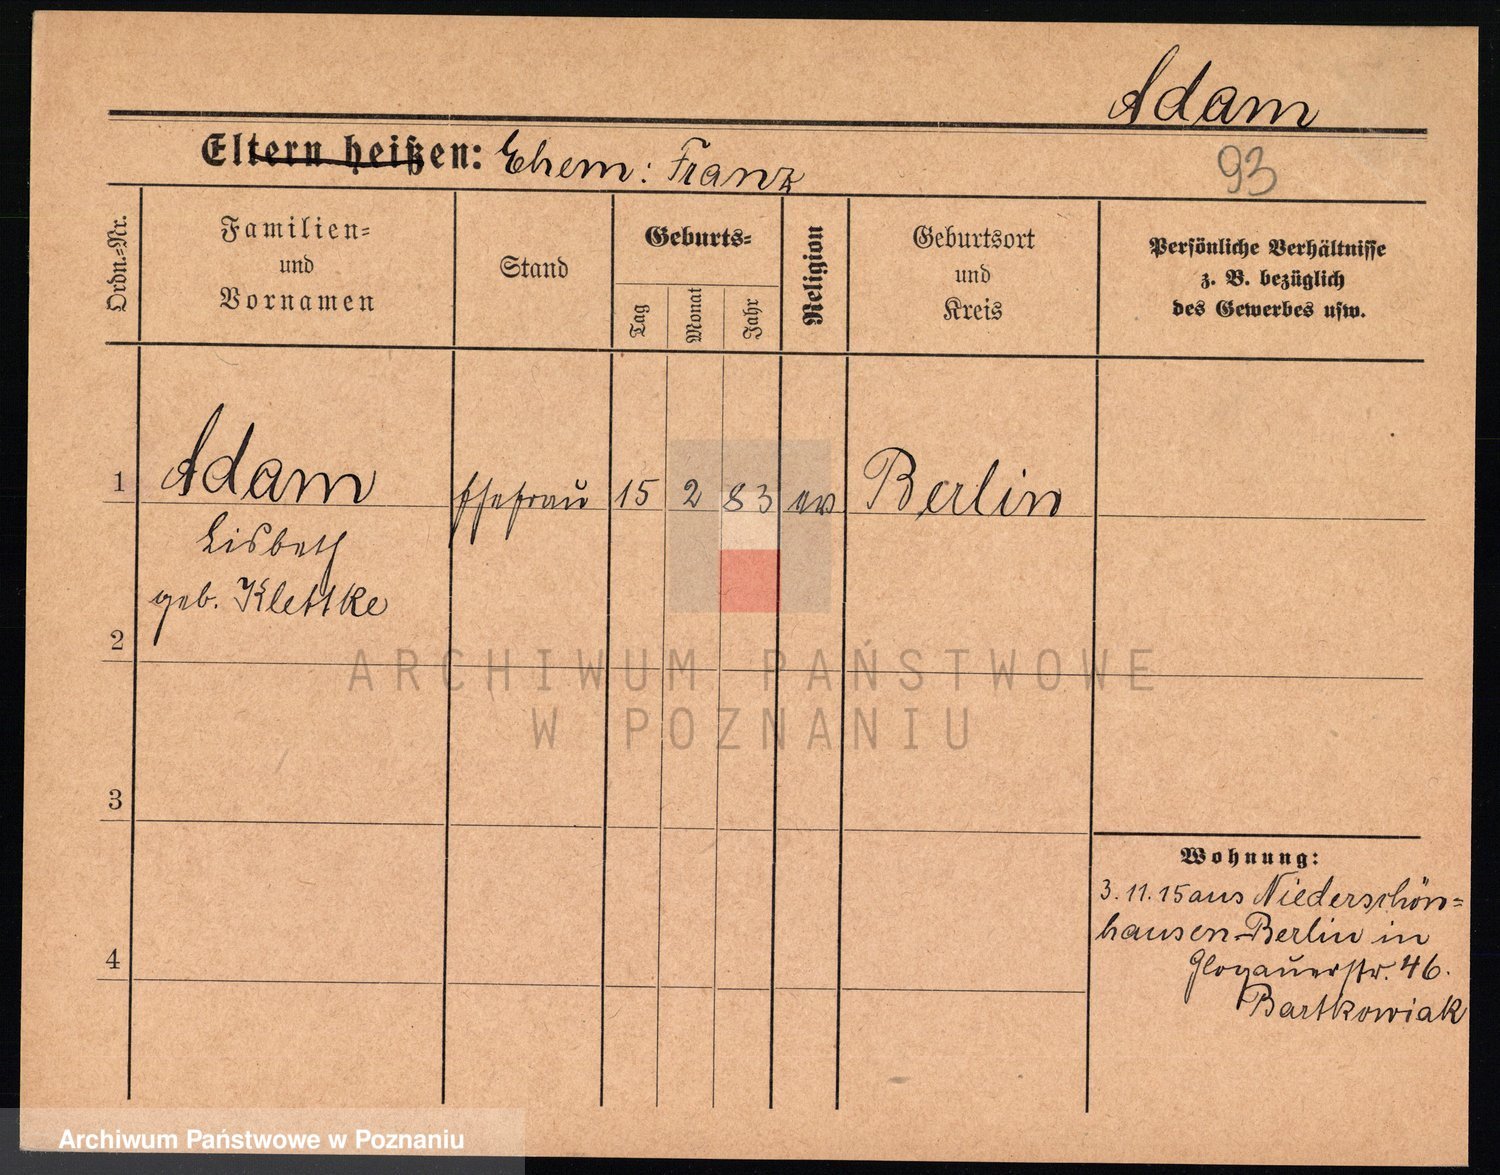 Adam
Eltern heißen: Ehem: Franz
93
Ordn.-Nr.
Familien-
und
Vornamen
Stand
Geburts-
Tag
Monat
Jahr
Religion
Geburtsort
und
Kreis
Persönliche Verhältnisse
z. B. bezüglich
des Gewerbes usw.
1 Adam Ehefrau 15 2 83 ev Berlin
Lisbeth
geb. Klettke
2
ARCHIWUM PAŃSTWOWE
W POZNANIU
3
Wohnung:
3. 11. 15 aus Niederschön=
hausen-Berlin in
Glogauerstr. 46.
Bartkowiak
4
Archiwum Państwowe w Poznaniu